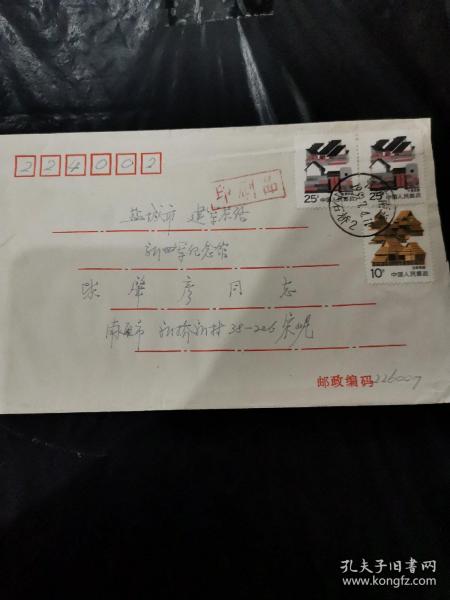 224002
印刷品
25分
中国人民邮政
25分
中国人民邮政
10分
中国人民邮政
盐城市 建军东路
新四军纪念馆
张肇彦同志
南通市 新桥新村 38-226 宋
邮政编码 226007
孔夫子旧书网
www.kongfz.com